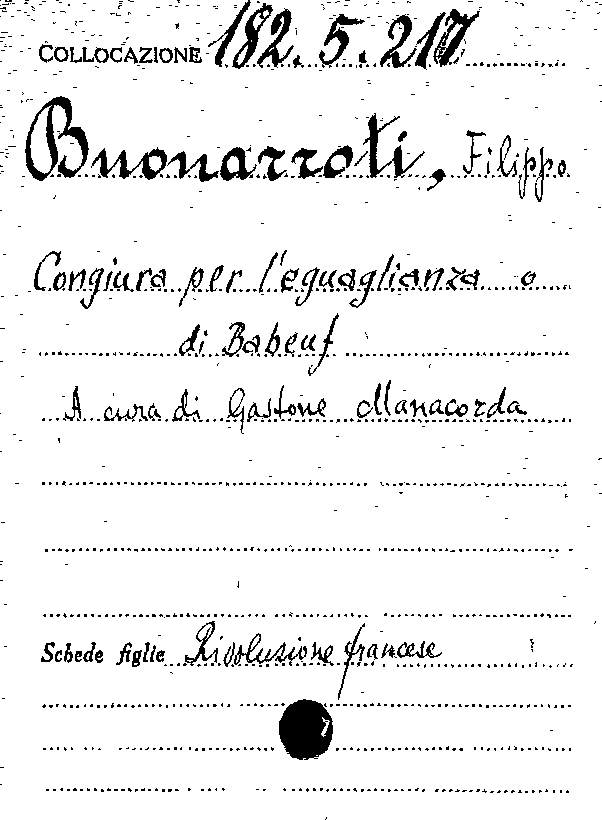 COLLOCAZIONE 182.5.217
Buonarroti, Filippo
Congiura per l'eguaglianza o
di Babeuf
A cura di Gastone Manacorda
Schede figlie Rivoluzione francese